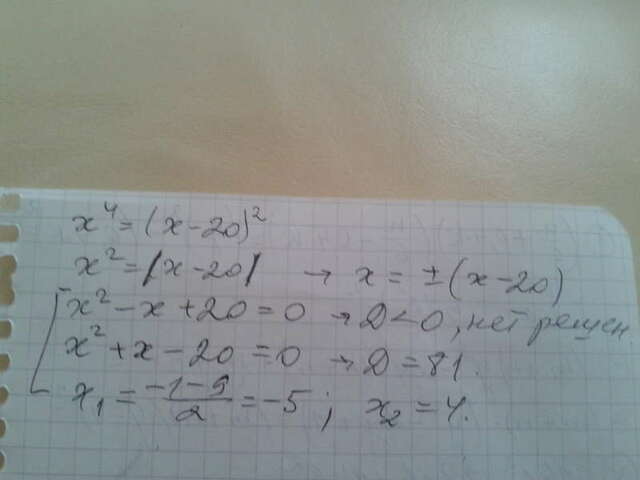 x⁴ = (x-20)²
x² = |x-20| → x = ±(x-20)
x² - x + 20 = 0 → D < 0, нет решен.
x² + x - 20 = 0 → D = 81.
x₁ = (-1-9)/2 = -5; x₂ = 4.